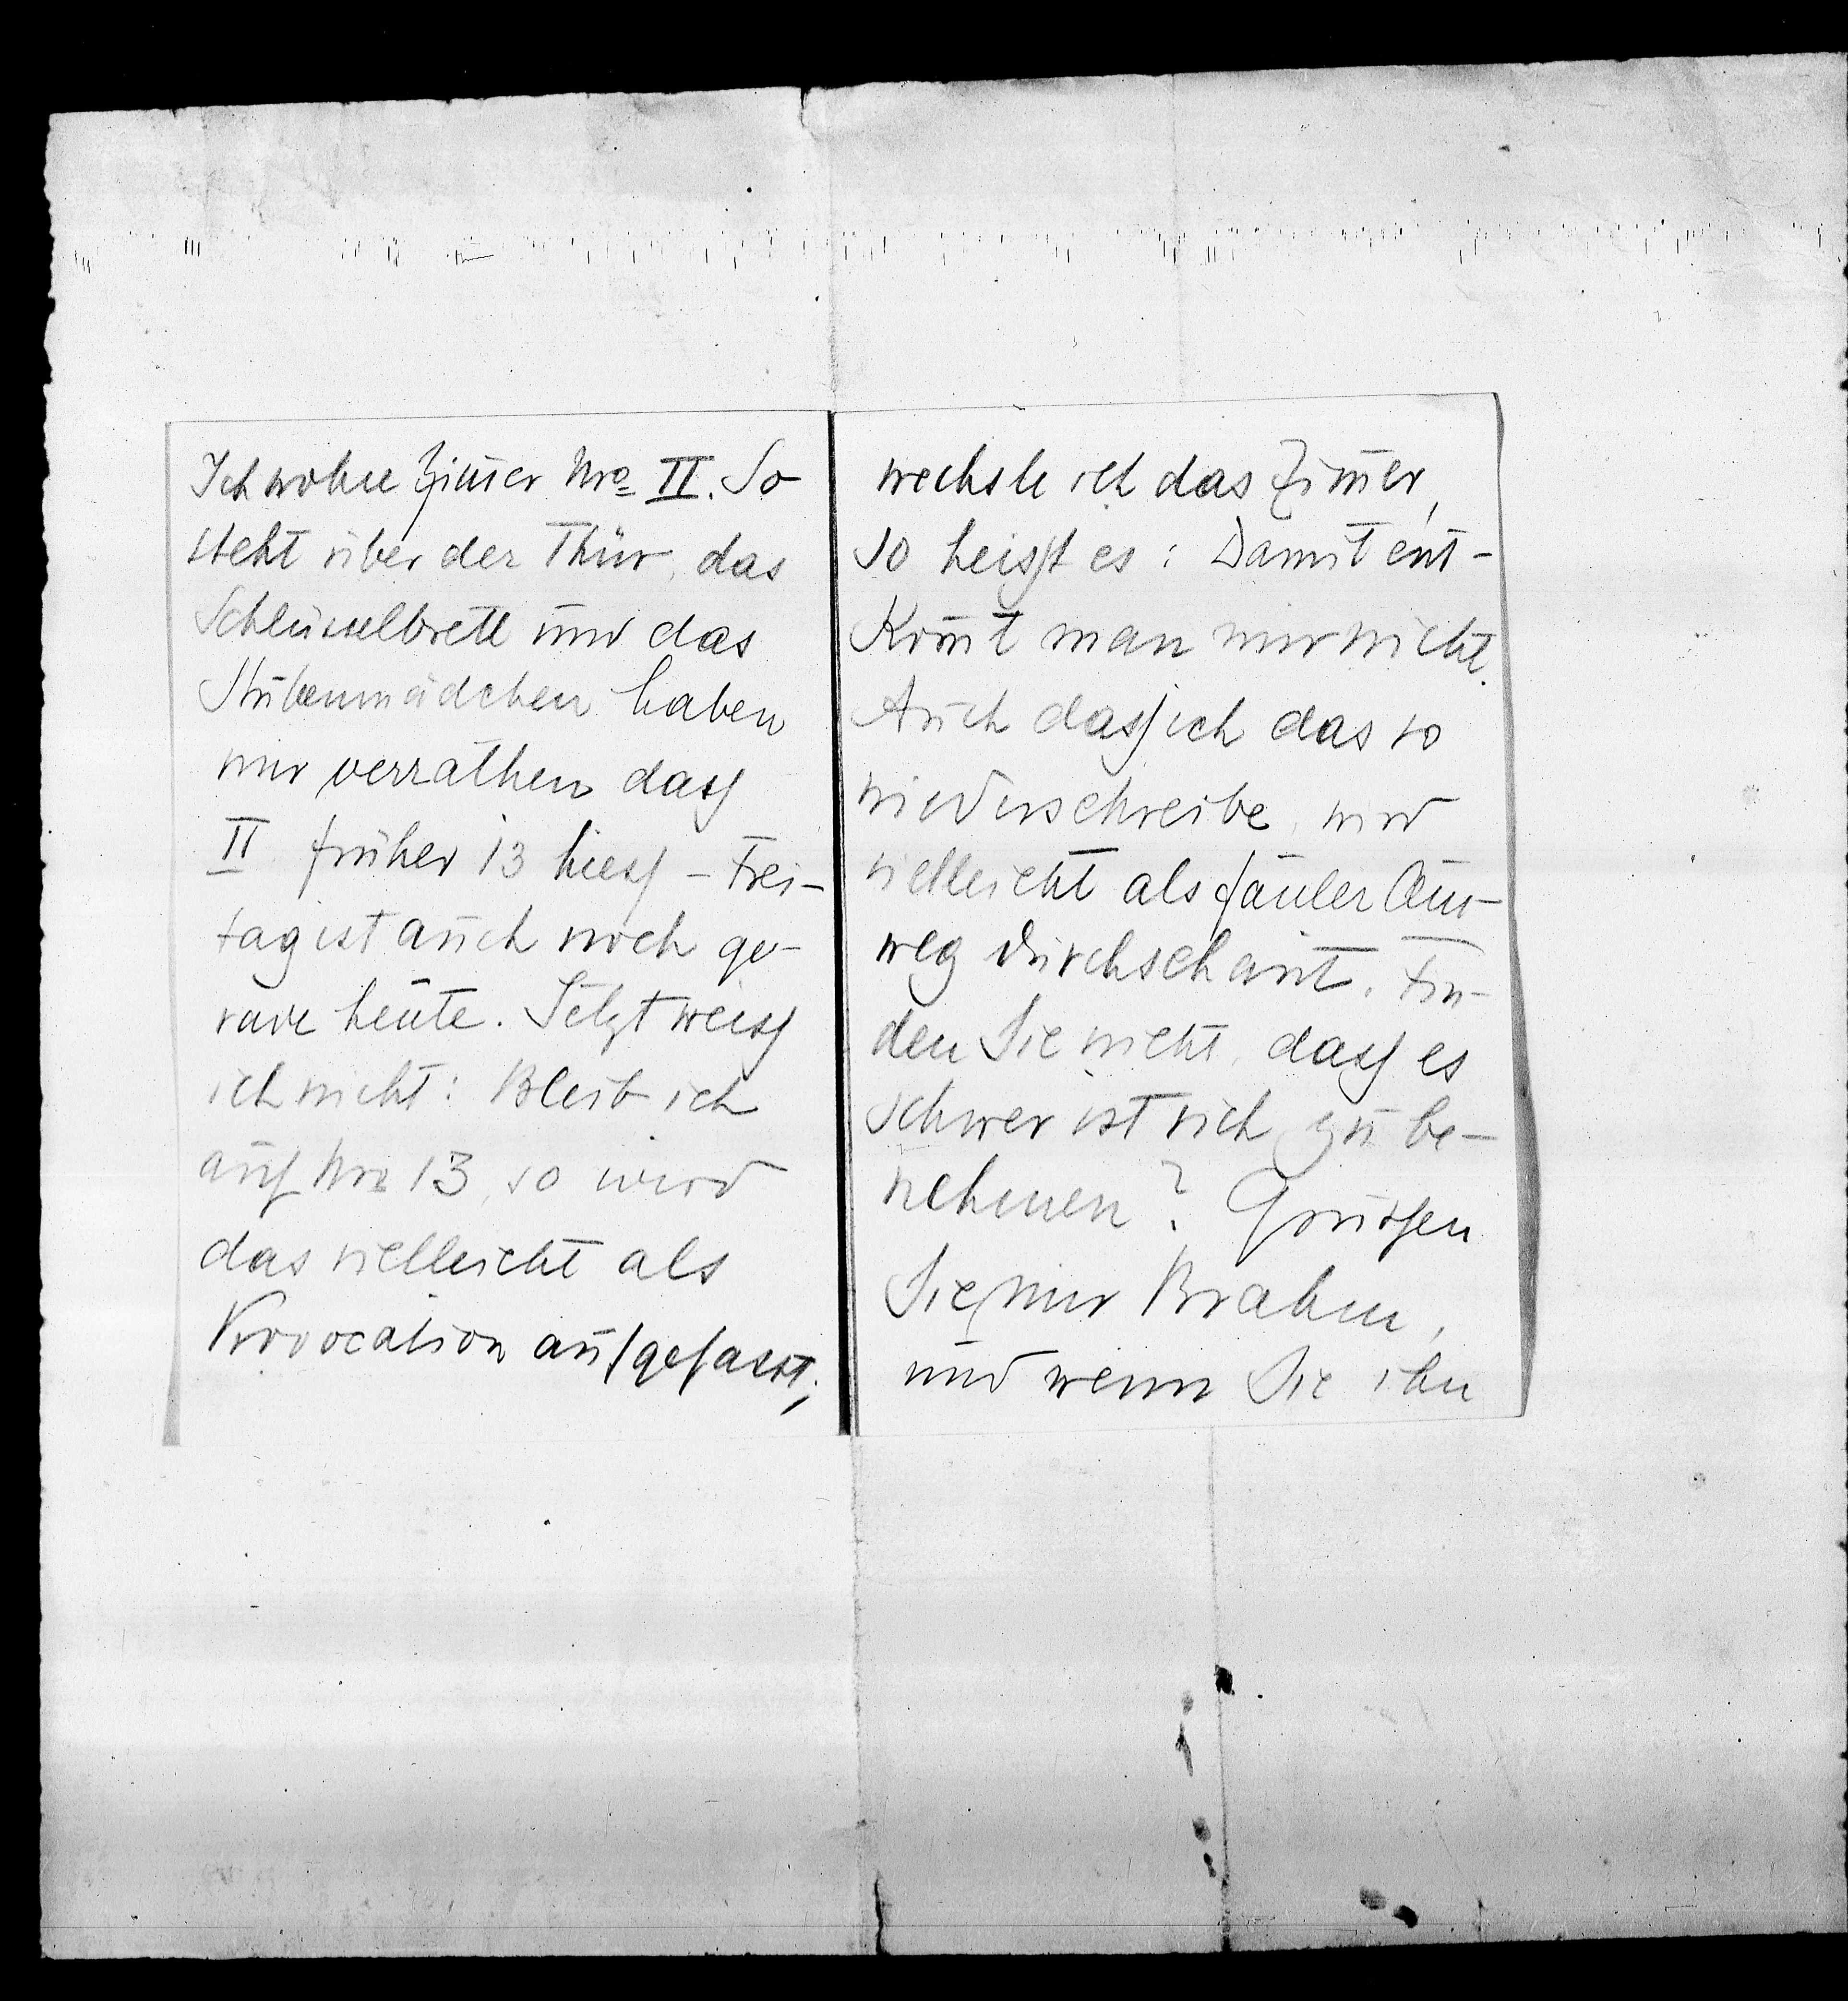 Ich wohne Zim̄er Nro II. So
steht über der Thür, das
Schlüsselbrett und das
Stubenmädchen haben
mir verrathen dass
II früher 13 hiess – Frei-
tag ist auch noch ge-
rade heute. Jetzt weiss
ich nicht: Bleib ich
auf Nro 13, so wird
das vielleicht als
Provocation aufgefasst;
wechsle ich das Zim̄er,
so heisst es: Damit ent-
kom̄t man mir nicht.
Auch dass ich das so
niederschreibe, wird
vielleicht als fauler Aus-
weg durchschaut. Fin-
den Sie nicht, dass es
schwer ist sich zu be-
nehmen? Grüssen
Sie mir Brahm,
und wenn Sie ihn